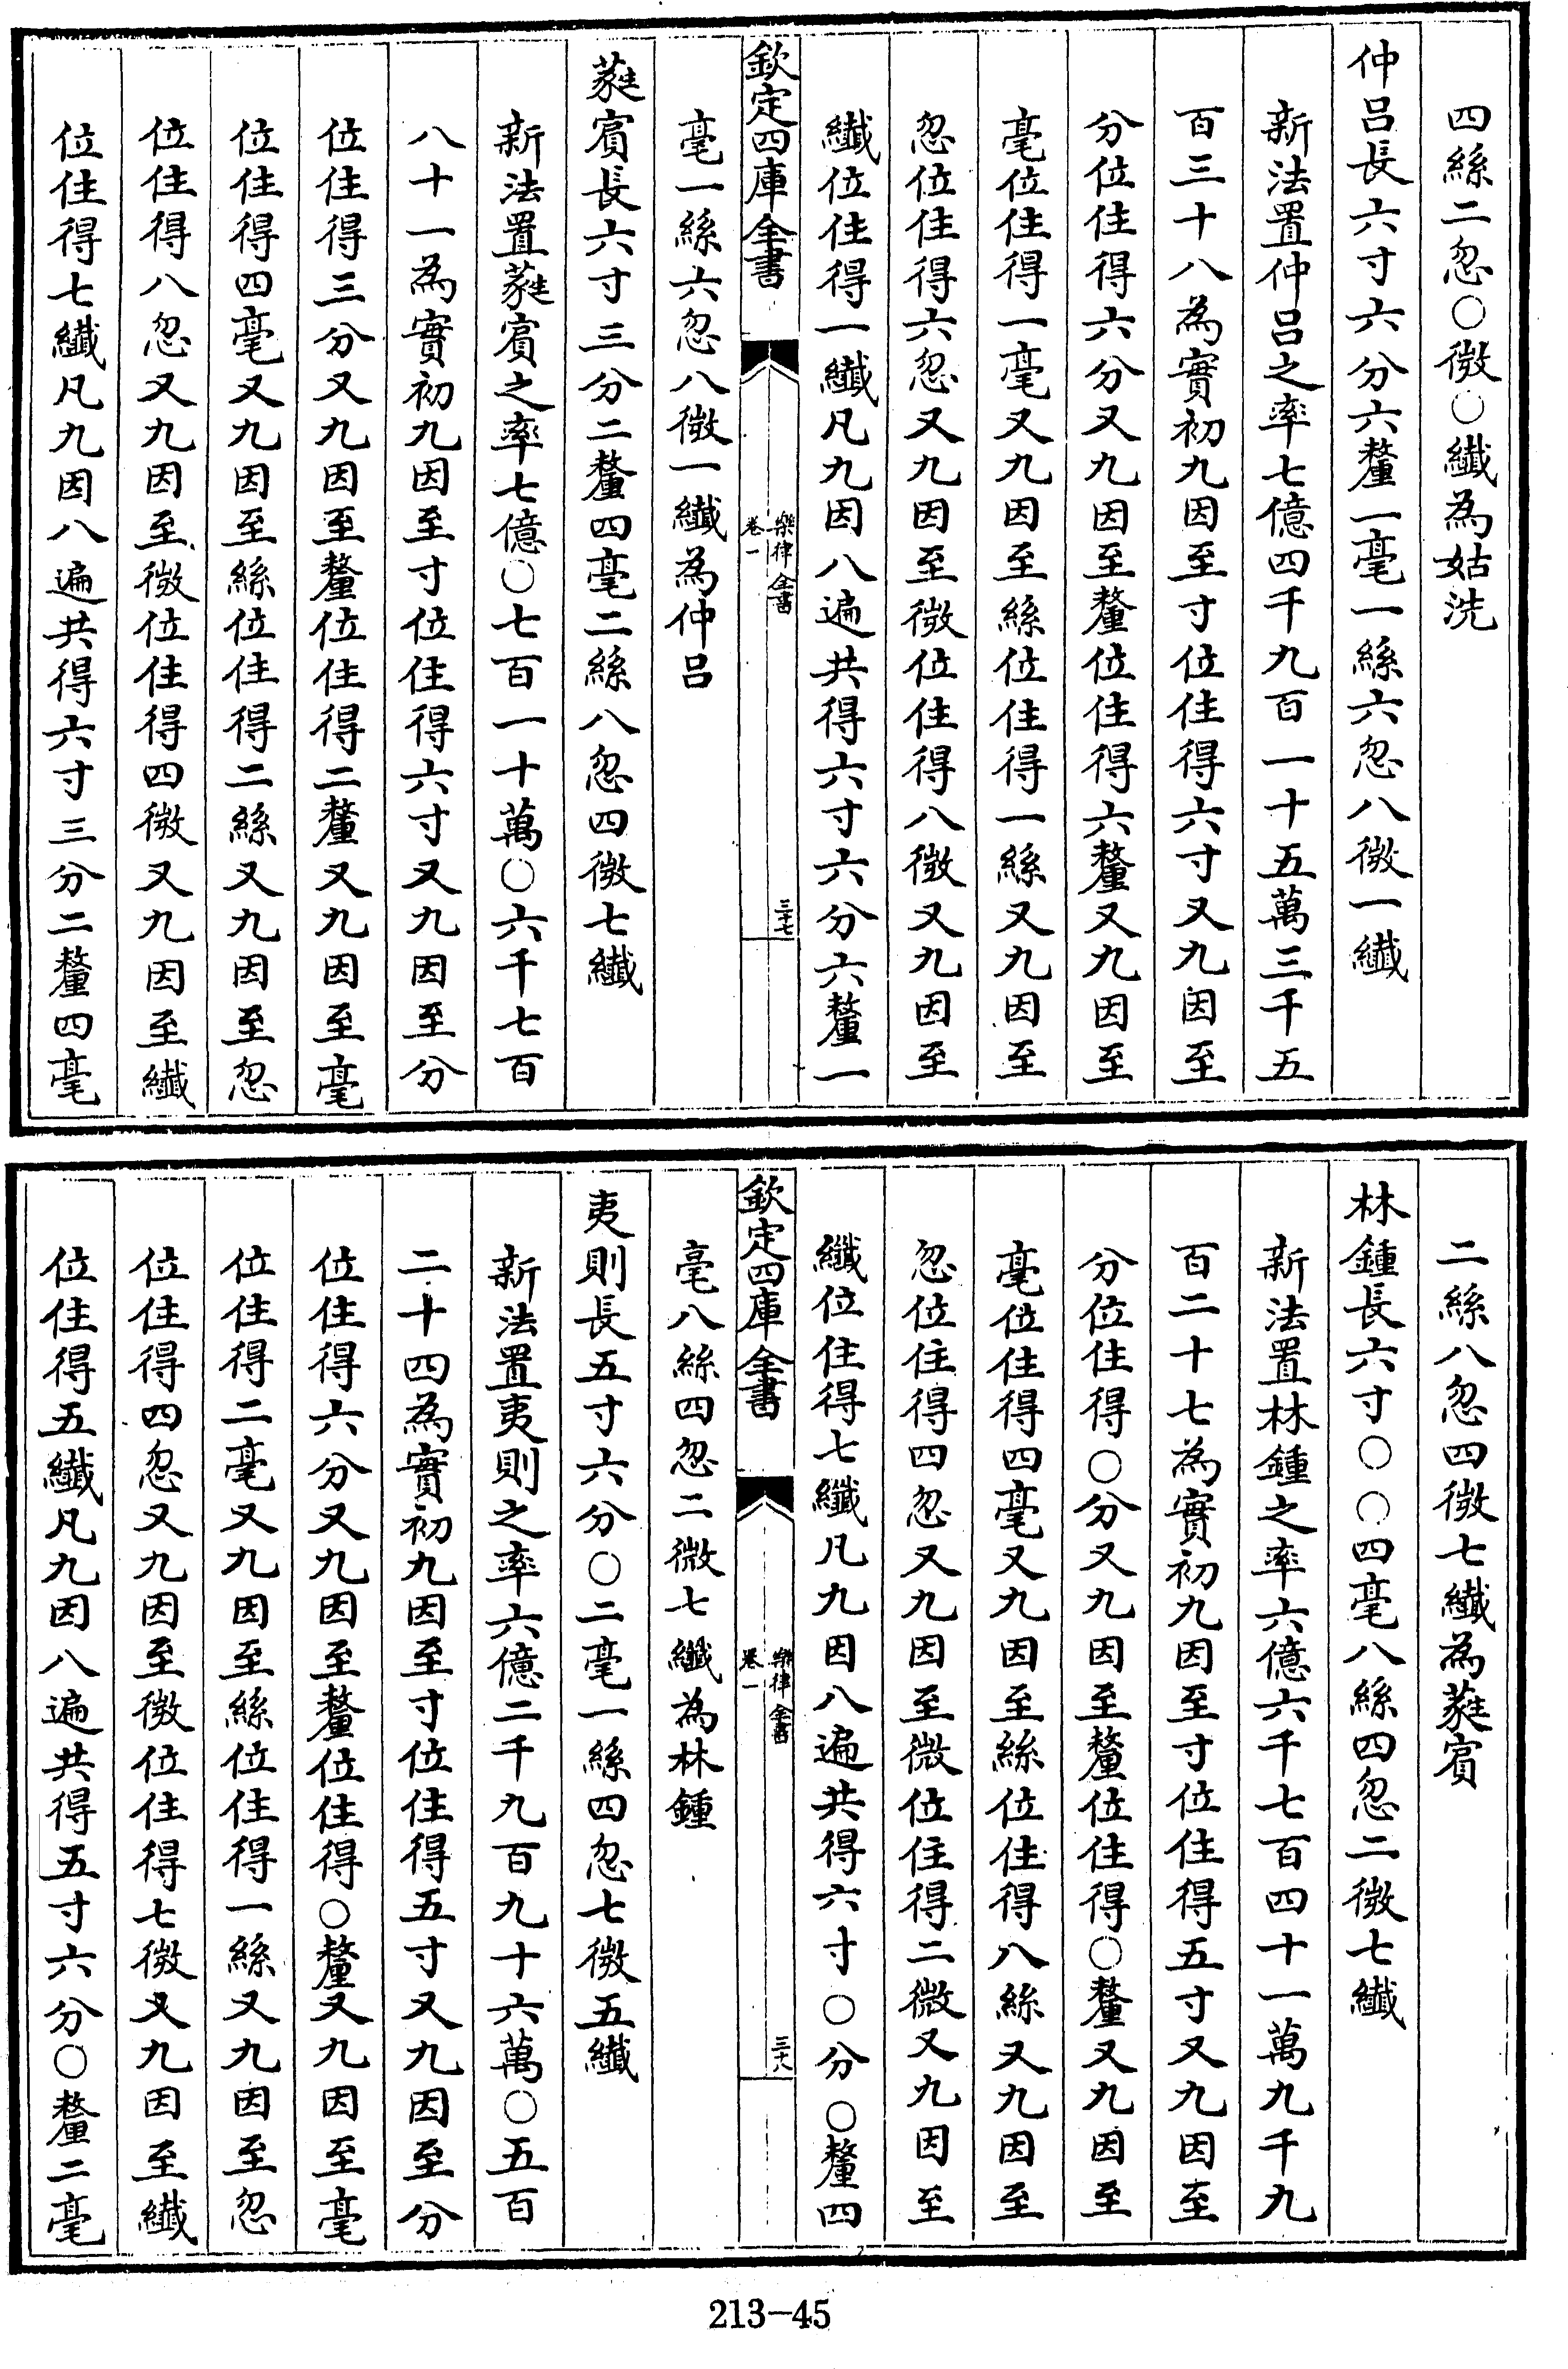 四絲二忽○微○纎為姑洗
仲呂長六寸六分六釐一毫一絲六忽八微一纎
新法置仲呂之率七億四千九百一十五萬三千五
百三十八為實初九因至寸位住得六寸又九因至
分位住得六分又九因至釐位住得六釐又九因至
毫位住得一毫又九因至絲位住得一絲又九因至
忽位住得六忽又九因至微位住得八微又九因至
纎位住得一纎凡九因八遍共得六寸六分六釐一
欽定四庫全書
樂律全書
卷一
三十七
毫一絲六忽八微一纎為仲呂
蕤賓長六寸三分二釐四毫二絲八忽四微七纎
新法置蕤賓之率七億○七百一十萬○六千七百
八十一為實初九因至寸位住得六寸又九因至分
位住得三分又九因至釐位住得二釐又九因至毫
位住得四毫又九因至絲位住得二絲又九因至忽
位住得八忽又九因至微位住得四微又九因至纎
位住得七纎凡九因八遍共得六寸三分二釐四毫
二絲八忽四微七纎為蕤賓
林鍾長六寸○○四毫八絲四忽二微七纎
新法置林鍾之率六億六千七百四十一萬九千九
百二十七為實初九因至寸位住得五寸又九因至
分位住得○分又九因至釐位住得○釐又九因至
毫位住得四毫又九因至絲位住得八絲又九因至
忽位住得四忽又九因至微位住得二微又九因至
纎位住得七纎凡九因八遍共得六寸○分○釐四
欽定四庫全書
樂律全書
卷一
三十八
毫八絲四忽二微七纎為林鍾
夷則長五寸六分○二毫一絲四忽七微五纎
新法置夷則之率六億二千九百九十六萬○五百
二十四為實初九因至寸位住得五寸又九因至分
位住得六分又九因至釐位住得○釐又九因至毫
位住得二毫又九因至絲位住得一絲又九因至忽
位住得四忽又九因至微位住得七微又九因至纎
位住得五纎凡九因八遍共得五寸六分○釐二毫
213-45